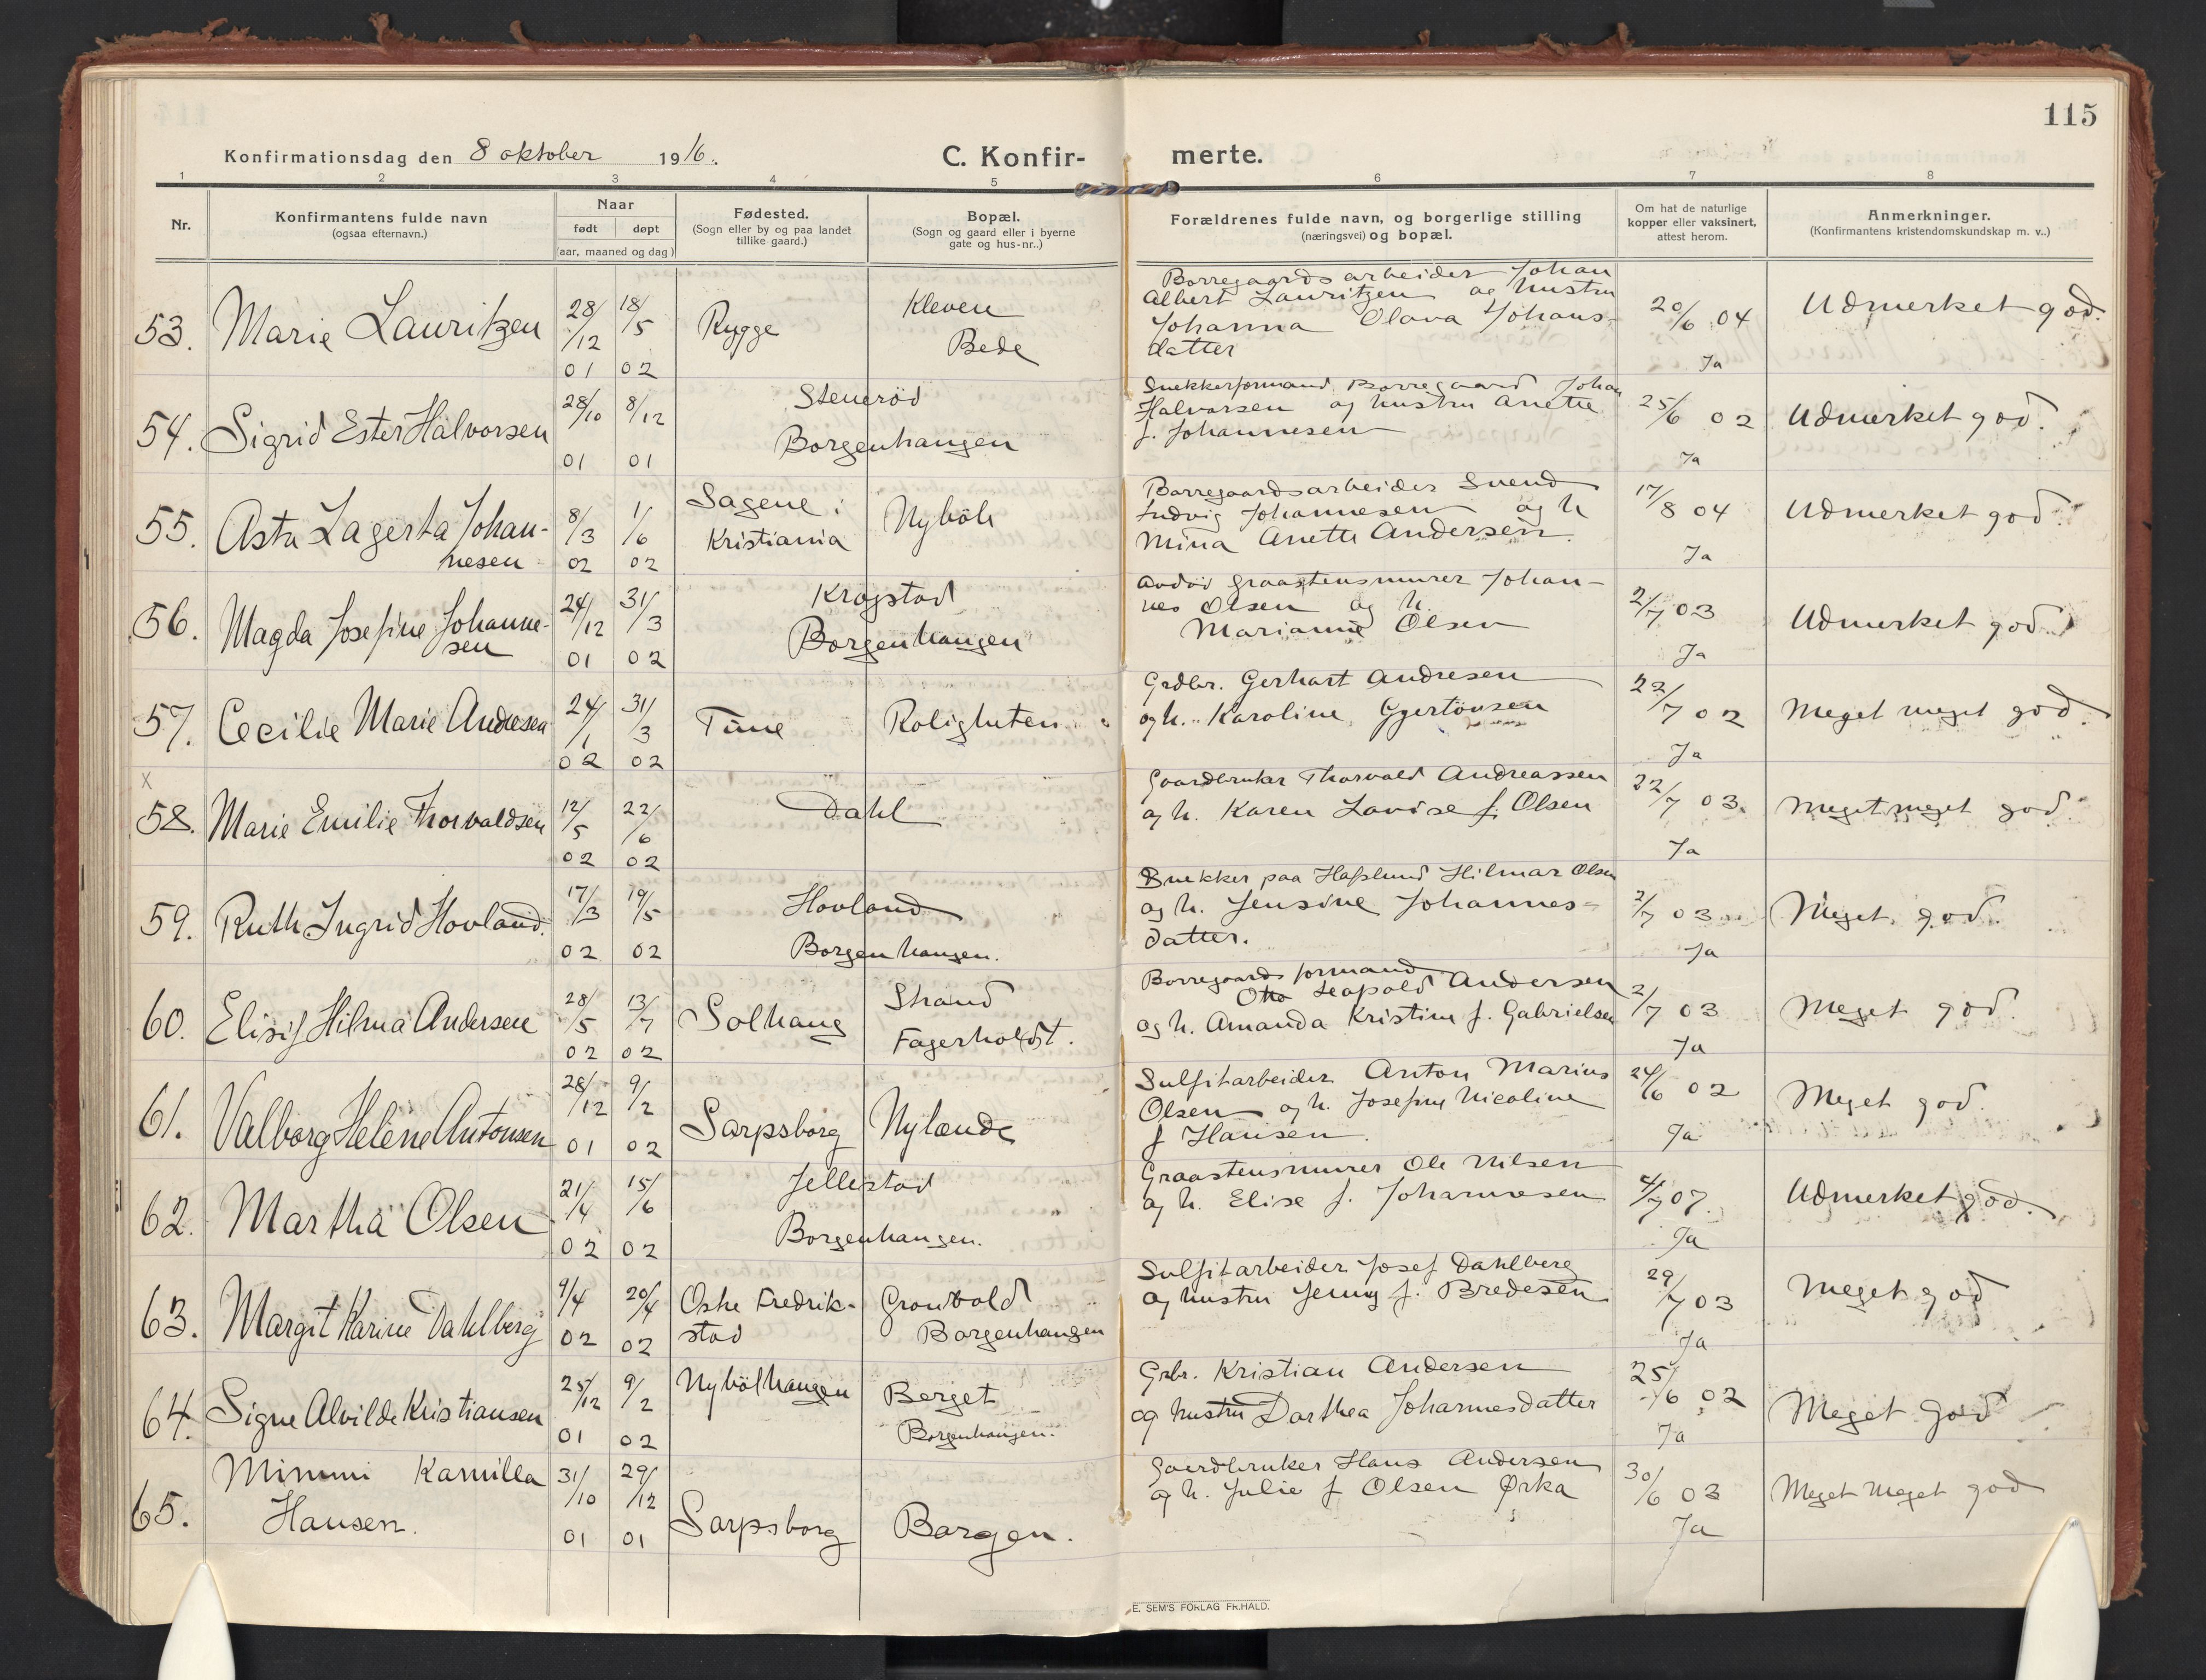 115
Konfirmationsdag den 8 oktober 1916.
C. Konfirmerte.
1 2 3 4 5 6 7 8
Nr.
Konfirmantens fulde navn
(ogsaa efternavn.)
Naar
født døpt
(aar, maaned og dag)
Fødested.
(Sogn eller by og paa landet
tillike gaard.)
Bopæl.
(Sogn og gaard eller i byerne
gate og hus-nr..)
Forældrenes fulde navn, og borgerlige stilling
(næringsvei) og bopæl.
Om hat de naturlige
kopper eller vaksinert,
attest herom.
Anmerkninger.
(Konfirmantens kristendomskundskap m. v..)
53. Marie Lauritzen
28/12 01 18/5 02
Rygge
Kleven
Bede
Borregaards arbeider Johan
Albert Lauritzen og hustru
Johanna Olava Johans-
datter
20/6 04
Ja
Udmerket god.
54. Sigrid Ester Halvorsen
28/10 01 8/12 01
Stenerød
Borgenhaugen
Snekkerformand Borregaard Johan
Halvorsen og hustru Anette
f. Johannesen
25/6 02
Ja
Udmerket god.
55. Asta Lagerta Johan-
nesen
8/3 02 1/6 02
Sagene i
Kristiania
Nyböle
Borregaardsarbeider Svend
Ludvig Johannesen og h
Mina Anette Andersen.
17/8 04
Ja
Udmerket god.
56. Magda Josefine Johanne-
sen
24/12 01 31/3 02
Krogstad
Borgenhaugen
graastensmurer Johan-
nes Olsen og h.
Marianne Olsen
2/7 03
Ja
Udmerket god
57. Cecilie Marie Andresen
24/1 02 31/3 02
Tune
Roligheten
Grdbr. Gerhart Andresen
og h. Karoline Gjertönsen
22/7 02
Ja
Meget meget god.
x
58. Marie Emilie Thorvaldsen
12/5 02 22/6 02
Dahl
Gaardbruker Thorvald Andreassen
og h. Karen Lovise f. Olsen
22/7 03.
Ja
Meget meget god.
59. Ruth Ingrid Hovland.
17/3 02 19/5 02
Hovland
Borgenhaugen.
Snekker paa Hafslund Hilmar Olsen
og h. Jensine Johannes-
datter.
2/7 03
Ja
Meget god.
60. Elisif Hilma Andersen
28/5 02 13/7 02
Solhaug
Strand
Fagerholdt.
Borregaards formand
Otto Leopold Andersen
og h. Amanda Kristine f. Gabrielsen
2/7 03
Ja
Meget god.
61. Valborg Helene Antonsen
28/12 01 9/2 02
Sarpsborg
Nylænde
Sulfitarbeider Anton Marius
Olsen og h. Josefine Nicoline
f Hansen.
24/6 02
Ja
Meget god.
62. Martha Olsen
21/4 02 15/6 02
Jellestad
Borgenhaugen.
Graastensmurer Ole Nilsen
og h. Elise f. Johannesen
4/7 07.
Ja
Udmerket god.
63. Margit Karine Dahlberg
9/4 02 20/4 02
Østre Fredrik-
stad
Gronvold
Borgenhaugen
Sulfitarbeider Josef Dahlberg
og hustru Jenny f. Bredesen
29/7 03
Ja
Meget god
64. Signe Alvilde Kristiansen
25/12 01 9/2 02
Nybölhaugen
Berget
Borgenhaugen.
Grbr. Kristian Andersen
og hustru Dorthea Johannesdatter
25/6 02
Ja
Meget god
65. Mimmi Kamilla
Hansen.
31/10 01 29/12 01
Sarpsborg
Borgen.
Gaardbruker Hans Andersen
og h. Julie f Olsen Ørka
30/6 03
Ja
Meget Meget god
E. SEM'S FORLAG FR.HALD.